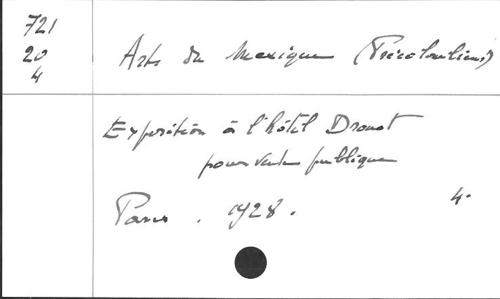 721
20
4
Arts du Mexique (Précolombiens)
Exposition à l'hôtel Drouot
pour vente publique
Paris . 1928 .
4.